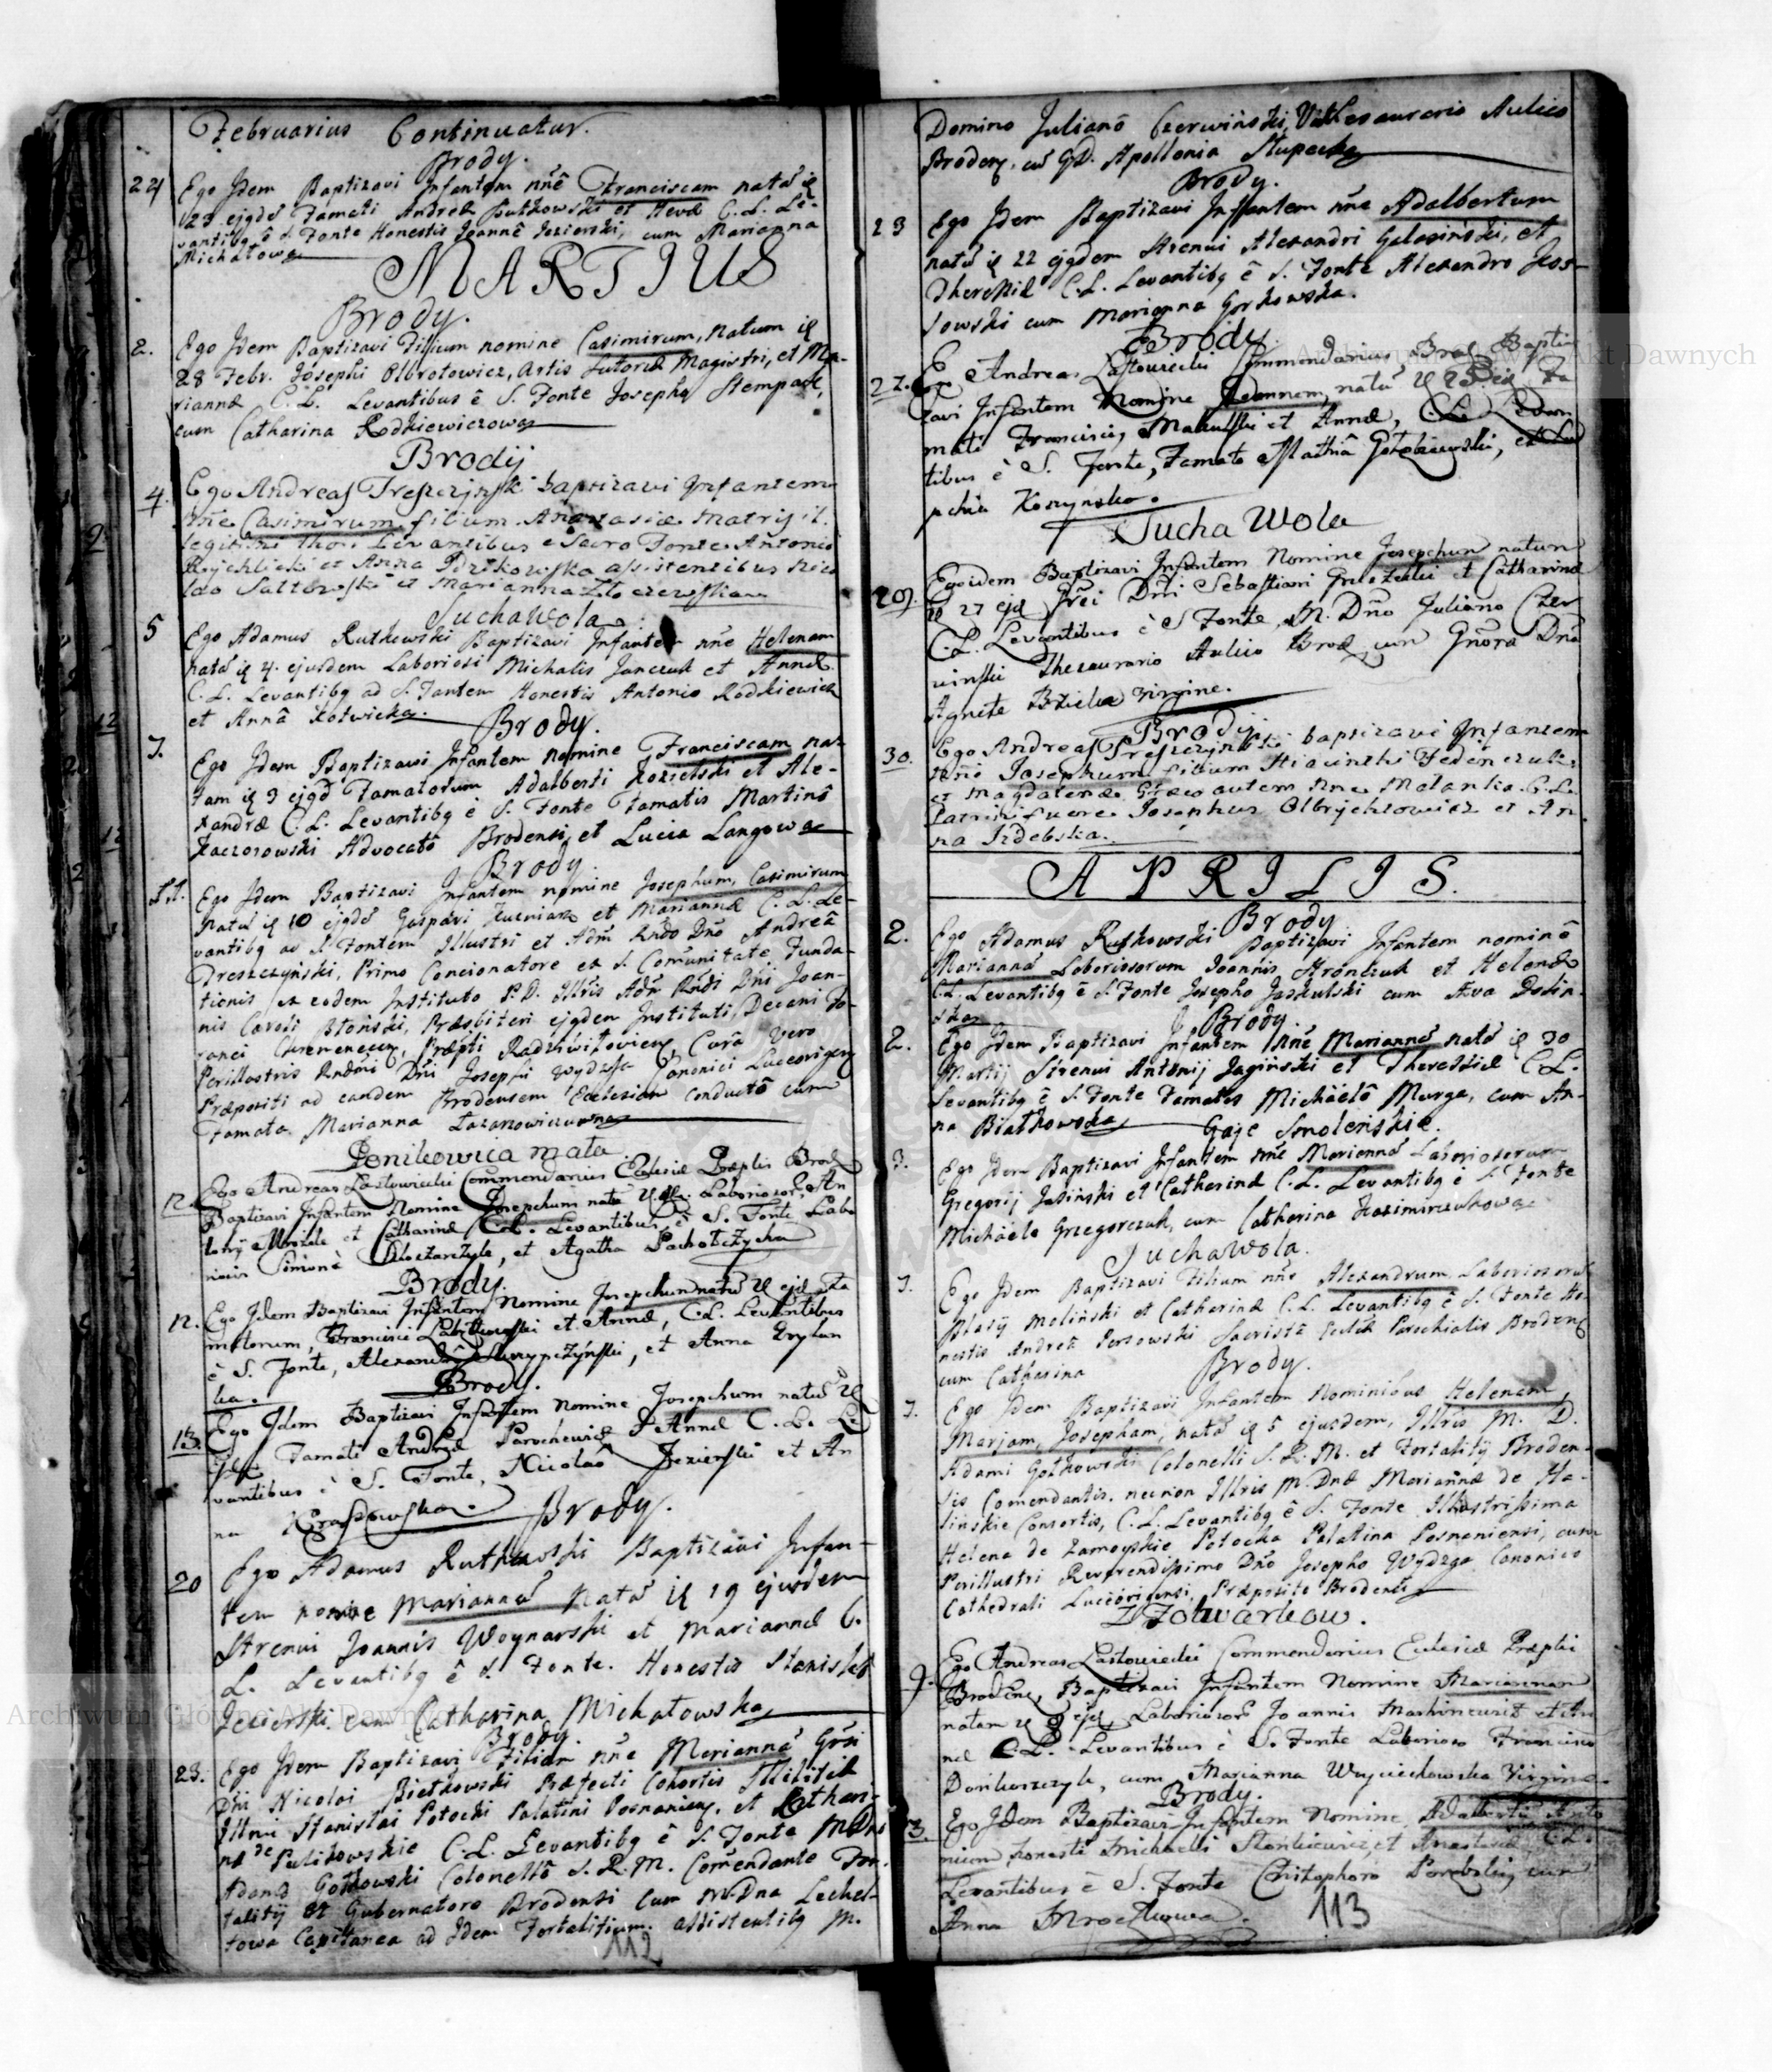 Februarius Continuatur.
Brody.
24 Ego Idem Baptizavi Infantem nñe Franciscam natã
23 ejgdẽ Famati Andreæ Rutkowski et Hevæ C. L. Le-
vantibg ẽ S. Fonte Honestis Joannẽ Jezierski, cum Marianna
Michałowa
MARTIUS
Brody.
2. Ego Idem Baptizavi Filium nomine Casimirum, natum
28 Febr. Josephi Olbrotowicz, Artis Sutoriæ Magistri, et Ma-
riannæ C. L. Levantibus ẽ S. Fonte Josepho Stempack,
cum Catharina Rodkiewiczowa
Brodij
4. Ego Andreas Treszczynski baptizavi Infantem
nñe Casimirum filium Anastasiæ Matris il.
legitimi thori Levantibus e Sacro Fonte Antonio
Rychlicki et Anna assistentibus Nico
lao et Marianna
SuchaWola
5 Ego Adamus Rutkowski Baptizavi Infantem nñe Helenam
natã 4. ejusdem Laboriosi Michalis Janczuk et Annæ
C. L. Levantibg ad S. Fontem Honestis Antonio Rodkiewicz
et Annâ Kotwicka. Brody.
7. Ego Idem Baptizavi Infantem nomine Franciscam na-
tam 3 ejgd Famatorum Adalberti Kozielski et Ale-
xandræ C. L. Levantibg ẽ S. Fonte Famatis Martinô
Kaczorowski Advocatô Brodensi, et Lucia Langowa
Brody
11. Ego Idem Baptizavi Infantem nomine Josephum, Casimirum
Natũ 10 ejgdẽ Gaspari et Mariannæ C. L. Le-
vantibg ad S. Fontem Illustri et Adm Rndo Dño Andreâ
Dreszczyński, Primo Concionatore ex S. Comunitate, Funda-
tionis ex eodem Instituto P. D. Illris Adm Rndi Dni Joan-
nis Caroli Błoński, Præsbiteri ejgdem Instituti, Decani Fo-
ranei Præpti Radziwiłłovien, Curâ vero
Perillustris Rndmi Dñi Josephi Wydzga Canonici Luceorien
Præpositi ad eandem Brodensem Ecclesiam conductô cum
Famata Marianna Łazarowiczowna
Ponikowica mała
12. Ego Andreas Lastowiecki Commendarius Ecclesiæ Præptis Brod
Baptizavi Infantem Nomine Josepchum natũ Laboriosor. An
tonij et Catharinæ C. L. Levantibus ẽ S. Fonte Labo
riosis Simonẽ et Agatha
Brody.
12. Ego Idem Baptizavi Infantem Nomine Josepchum natũ ejd. Fa
matorum, Francisci et Annæ, C. L. Levantibus
ẽ S. Fonte, Alexandrô Skrzypczyński, et Anna
ka.
Brody.
13. Ego Idem Baptizavi Infantem Nomine Josepchum natũ
Famati Andreæ Parochewicz et Annæ C. L. Le
vantibus ẽ S. Fonte, Nicolaô Jezierski et An
na Kraszowska. Brody.
20 Ego Adamus Rutkowski Baptizavi Infan-
tem nomine Mariannã Natã 19 ejusdem
Strenui Joannis Woynarski et Mariannæ C.
L. Levantibg ẽ S. Fonte. Honestis Stanislaô
Jezierski cum Catharina Michałowska
Brody.
23. Ego Idem Baptizavi Filiam nñe Mariannã Grsi
Dñi Nicolai Białkowski Præfecti Cohortis Militiæ
Illmi Stanislai Potocki Palatini Posnanien, et Cathari-
næ de Pulikowskie C. L. Levantibg ẽ S. Fonte M. Dno
Adamo Gołkowski Colonellô S. R. M. Comendante For-
talitij et Gubernatore Brodensi cum M. Dna Lechel-
towa Capitanea ad Idem Fortalitium. assistentibg M.
112
Domino Julianô Czerwiński, Vice Thesaurario Aulico
Broden, cũ GD. Apollonia Słupecka
Brody.
23 Ego Idem Baptizavi Infantem nñe Adalbertum
natũ 22 ejgdem Strenui Alexandri Galasiński, et
Theresiæ C. L. Levantibg ẽ S. Fonte Alexandro Jos-
sowski cum Marianna Gorkowska.
Brody.
27. Ego Andreas Lastowiecki Commendarius Brod. Bapti
zavi Infantem Nomine Joannem, natũ 25 ejd. Fa
mati Francisci, et Annæ, C. L. Levan
tibus ẽ S. Fonte, Famato Mathiâ Gołębiewski, et Eu
pchia Koszynska.
Sucha Wola
29. Egoidem Baptizavi Infantem Nomine Josepchum natum
27 ejd Grẽi Dñi Sebastiani et Catharinæ
C. L. Levantibus ẽ S Fonte, M. Dño Juliano Czer
winski Thesaurario Aulico Brod, cum Gñosa Dña
Agnete virgine.
Brodij
30. Ego Andreas Treszczynski baptizavi Infantem
nñe Josephum filium Hiacinthi Fedenczuk
et Magdalenæ Græco autem nñe Malanka C. L.
Patrini fuere Josephus Olbrychtowicz et An
na Izdebska.
APRILIS.
Brody
2. Ego Adamus Rutkowski Baptizavi Infantem nominẽ
Mariannã Laboriosorum Joannis Hronczuk et Helenæ
C. L. Levantibg ẽ S. Fonte Josepho Jaszkulski cum Eva Dolin-
ska
Brody.
2. Ego Idem Baptizavi Infantem Nñe Mariannã natã 30
Martij Strenui Antonij Jagiński et Theressiæ C. L.
Levantibg ẽ S. Fonte Famatis Michäelô Murga, cum An-
na Białkowska
Gaje Smoleńskie.
3. Ego Idem Baptizavi Infantem nñe Mariannã Laboriosorum
Gregorij Jasiński et Catherinæ C. L. Levantibg ẽ S. Fonte
Michäele Grzegorczuk, cum Catharina Kazimirczukowa
SuchaWola.
7. Ego Idem Baptizavi Filium nñe Alexandrum Laboriosorũ
Blasij Moliński et Catharinæ C. L. Levantibg ẽ S. Fonte Ho-
nestis Andreâ Persowski Sacristâ Eccliæ Parochialis Broden
cum Catharina
Brody.
7. Ego Idem Baptizavi Infantem Nominibus Helenam,
Marjam, Josepham, natã 5 ejusdem, Illris M. D.
Adami Gołkowski Colonelli S. R. M. et Fortalitij Broden-
sis Comendantis. necnon Illris M. Dnæ Mariannæ de Ha-
sińskie Consortis, C. L. Levantibg ẽ S. Fonte Illustrissima
Helena de Zamoyskie Potocka Palatina Posnaniensi, cum
Perillustri Reverendissimo Dño Josepho Wydzga Canonico
Cathedrali Luceoriensi, Præposito Brodensi
Z Folwarkow.
9. Ego Andreas Lastowiecki Commendarius Ecclesiæ Præptis
Broden, Baptizavi Infantem Nomine Mariannam
natam 9 ejd. Laboriosor Joannis et An
næ C. L. Levantibus ẽ S. Fonte Laborioso Francisco
cum Marianna Woyciechowska Virgine.
Brody.
13. Ego Idem Baptizavi Infantem Nomine Adalbertũ Anto
nium honesti Michaelis Stankiewicz, et Anastasiæ C. L.
Levantibus ẽ S. Fonte Christophoro Porębski, cum
Anna Mroczkowa.
113
Archiwum Główne Akt Dawnych
Archiwum Główne Akt Dawnych